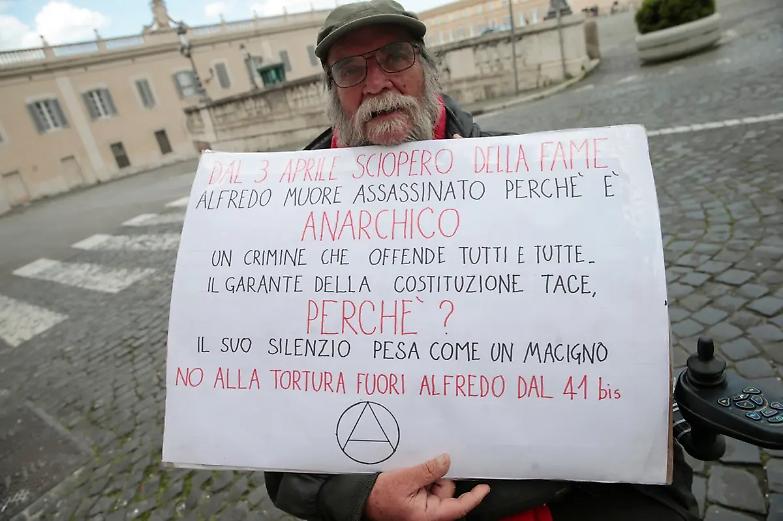 DAL 3 APRILE SCIOPERO DELLA FAME
ALFREDO MUORE ASSASSINATO PERCHÈ È
ANARCHICO
UN CRIMINE CHE OFFENDE TUTTI E TUTTE_
IL GARANTE DELLA COSTITUZIONE TACE,
PERCHÈ ?
IL SUO SILENZIO PESA COME UN MACIGNO
NO ALLA TORTURA FUORI ALFREDO DAL 41 bis
A